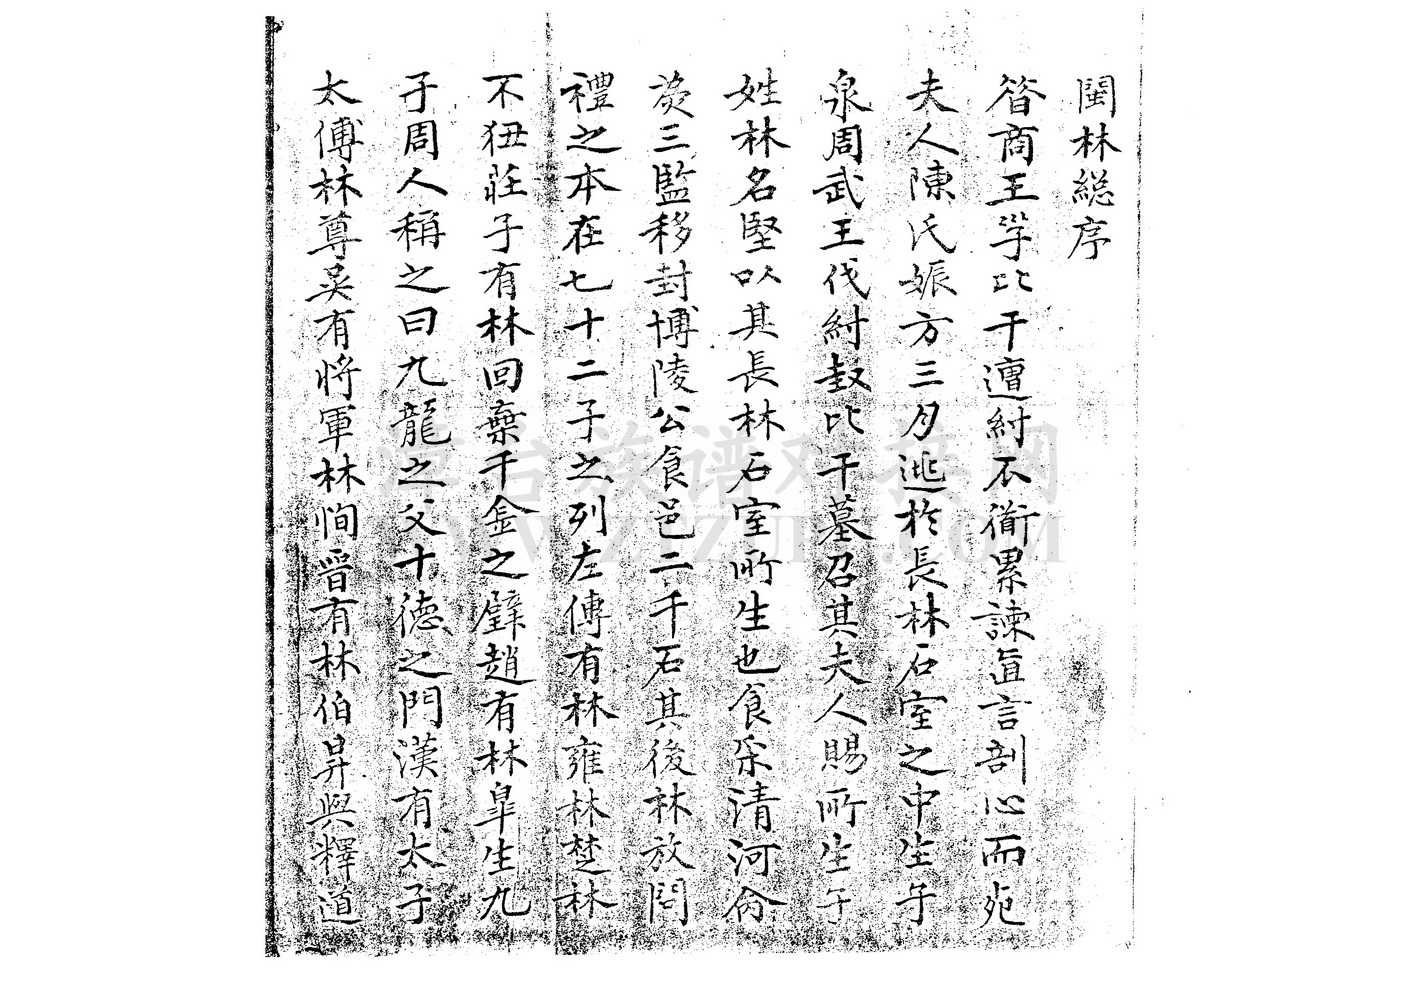 閩林総序
昝商王孚比干遭紂不衟累諫直言剖心而死
夫人陳氏娠方三月逃於長林石室之中生子
泉周武王伐紂封比干墓召其夫人賜所生子
姓林名堅以其長林石室所生也食采清河
三監移封博陵公食邑二千石其後林放問
禮之本在七十二子之列左傳有林雍林楚林
不狃莊子有林回棄千金之璧趙有林皐生九
子周人稱之曰九龍之父十德之門漢有太子
太傅林尊吳有將軍林恂晉有林伯昇與釋道
漳台族谱对接网
WWW.ZTZUPU.COM